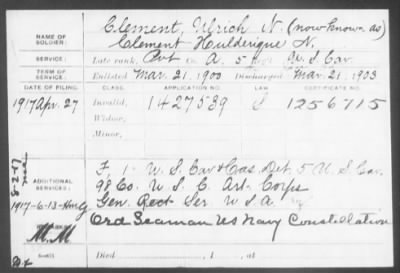 NAME OF SOLDIER: Clement, Ulrich N. (now known as)
Clement Hulderique N.
SERVICE: Late rank, Pvt Co. A. 5 U.S. Cav.
TERM OF SERVICE: Enlisted Mar. 21. 1900 Discharged Mar. 21. 1903
DATE OF FILING. CLASS. APPLICATION NO. LAW. CERTIFICATE NO.
1917 Apr. 27 Invalid, 1427539 1256715
Widow,
Minor,
ADDITIONAL SERVICES:
F, 1- U.S. Cav & Cas. Det. 5 U.S. Cav.
98 Co. U.S.C. Art. Corps
Gen. Rect Ser. U.S.A.
1917-6-13
Ord Seaman US Navy Constellation
M.M
Died , 1 , at